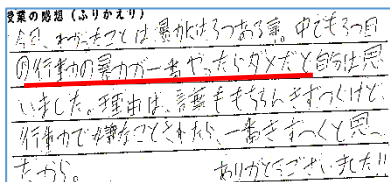 授業の感想（ふりかえり）
今日、わかったことは暴力は3つある事。中でも3つ目
の行動の暴力が一番やったらダメだと自分は思
いました。理由は、言葉ももちろんきずつくけど
行動で嫌なことされたら、一番きずつくと思っ
たから。 ありがとうございました!!